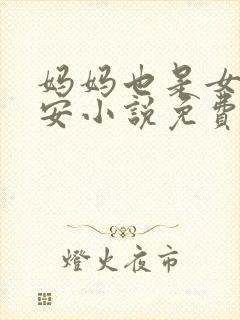 妈妈也是女
安小說免費
燈火夜市